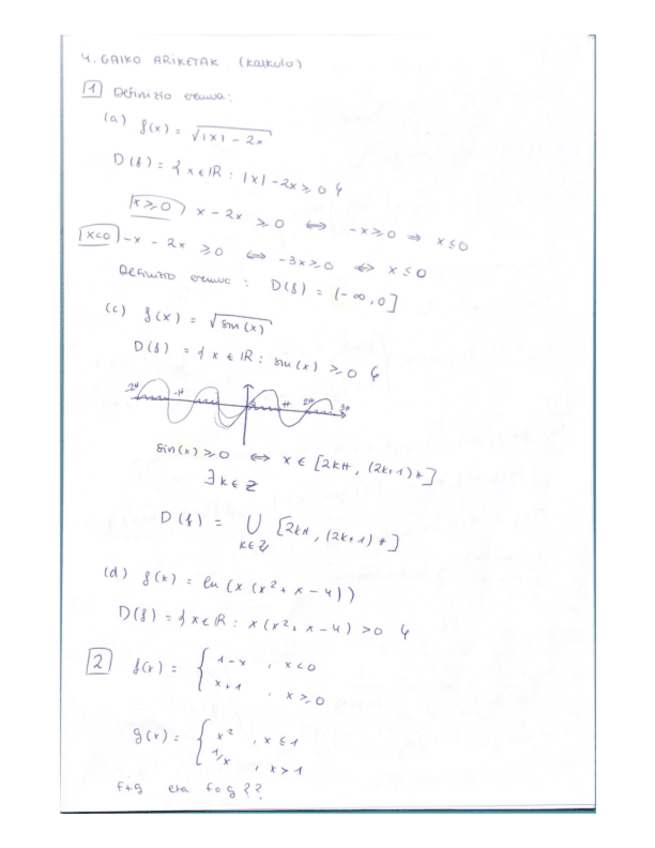 4. GAIKO ARIKETAK (Kalkulo)
1 Definizio eremua:
(a) f(x) = √(|x| - 2x)
D(f) = { x ∈ ℝ : |x| - 2x ≥ 0 }
x ≥ 0) x - 2x ≥ 0 ⇔ -x ≥ 0 ⇒ x ≤ 0
x<0 -x - 2x ≥ 0 ⇔ -3x ≥ 0 ⇔ x ≤ 0
Definizio eremua : D(f) = (-∞, 0]
(c) f(x) = √sin(x)
D(f) = { x ∈ ℝ : sin(x) ≥ 0 }
-2π -π π 2π 3π
sin(x) ≥ 0 ⇔ x ∈ [2kπ, (2k+1)π]
∃ k ∈ Z
D(f) = ∪ [2kπ, (2k+1)π]
k∈Z
(d) f(x) = ln (x(x² + x - 4))
D(f) = { x ∈ ℝ : x(x² + x - 4) > 0 }
2 f(x) = { 1-x , x<0
x+1 , x ≥ 0
g(x) = { x² , x ≤ 1
1/x , x > 1
f+g eta f∘g ??